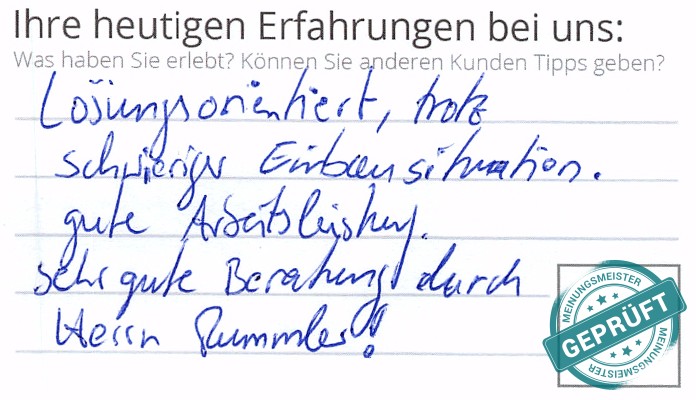 Ihre heutigen Erfahrungen bei uns:
Was haben Sie erlebt? Können Sie anderen Kunden Tipps geben?
Lösungsorientiert, trotz
schwieriger Einbausituation.
gute Arbeitsleistung.
sehr gute Beratung durch
Herrn Rummler!
MEINUNGSMEISTER
GEPRÜFT
MEINUNGSMEISTER